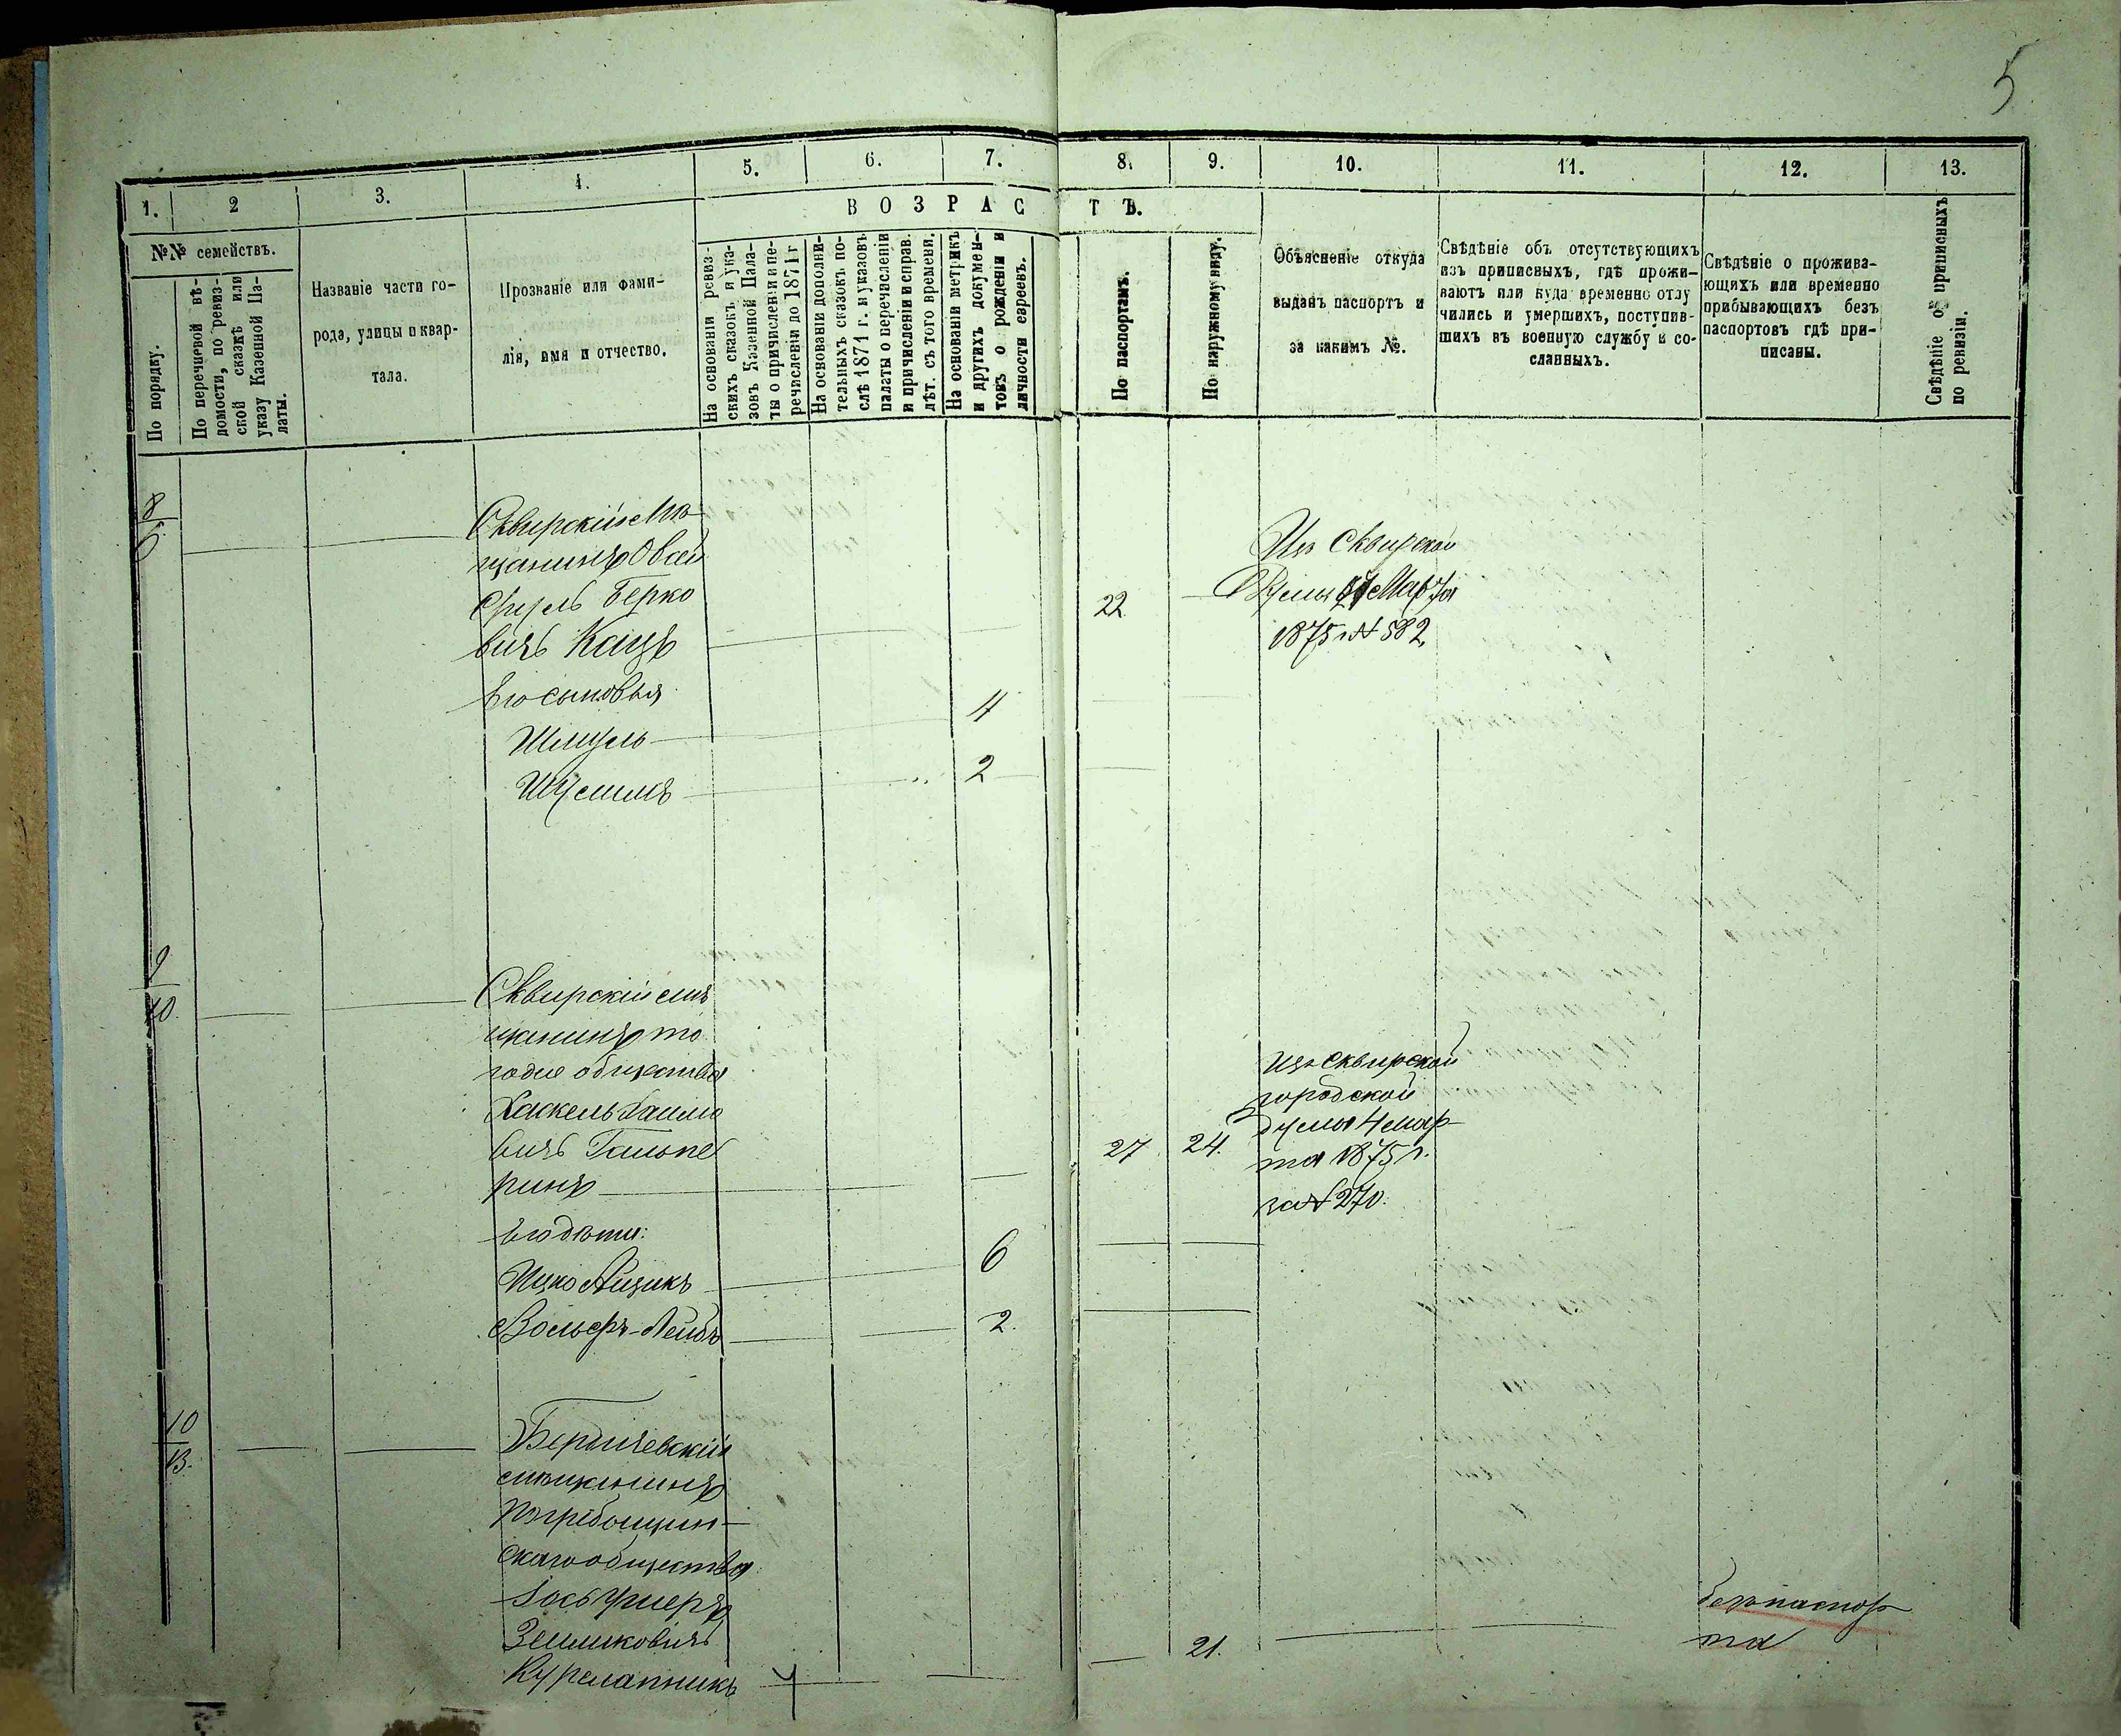 5
1.
2
3.
4.
5.
6.
7.
8.
9.
10.
11.
12.
13.
№№ семействъ.
По порядку.
По перечневой вѣ-
домости, по ревиз-
ской сказкѣ или
указу Казенной Па-
латы.
Названіе части го-
рода, улицы и квар-
тала.
Прозваніе или фами-
лія, имя и отчество.
ВОЗРАСТЪ.
На основаніи ревиз-
скихъ сказокъ и ука-
зовъ Казенной Пала-
ты о причисленіи и пе-
речисленіи до 1871 г
На основаніи дополни-
тельныхъ сказокъ по-
слѣ 1871 г. и указовъ
палаты о перечисленіи
и причисленіи и справ.
лѣт. съ того времени.
На основаніи метрикъ
и другихъ докумен-
товъ о рожденіи и
личности евреевъ.
По паспортамъ.
По наружному виду.
Объясненіе откуда
выданъ паспортъ и
за какимъ №.
Свѣдѣніе объ отсутствующихъ
изъ приписныхъ, гдѣ прожи-
ваютъ или куда временно отлу
чились и умершихъ, поступив-
шихъ въ военную службу и со-
сланныхъ.
Свѣдѣніе о прожива-
ющихъ или временно
прибывающихъ безъ
паспортовъ гдѣ при-
писаны.
Свѣдѣніе о приписныхъ
по ревизіи.
8
Сквирскій мѣ-
щанинъ Овсей
Сруль Берко
вичъ Кацъ
22
Изъ Сквирской
Думы Марта
1875 г № 582.
Его сыновья
Шмуль 4
Шулимъ 2
9
10.
Сквирскій мѣ
щанинъ то
гоже общества
Хаскель Хаимо
вичъ Гальпе
ринъ
27 24.
изъ Сквирской
городской
думы 4 мар
та 1875 г.
за № 270.
Его дѣти:
Ицко Айзикъ 6
Вольфъ-Лейбъ 2.
10
13.
Бердичевскій
мѣщанинъ
Погребищин-
скаго общества
Іось Ушеръ
Зеликовичъ
Курелапникъ
21.
безъ паспор
та